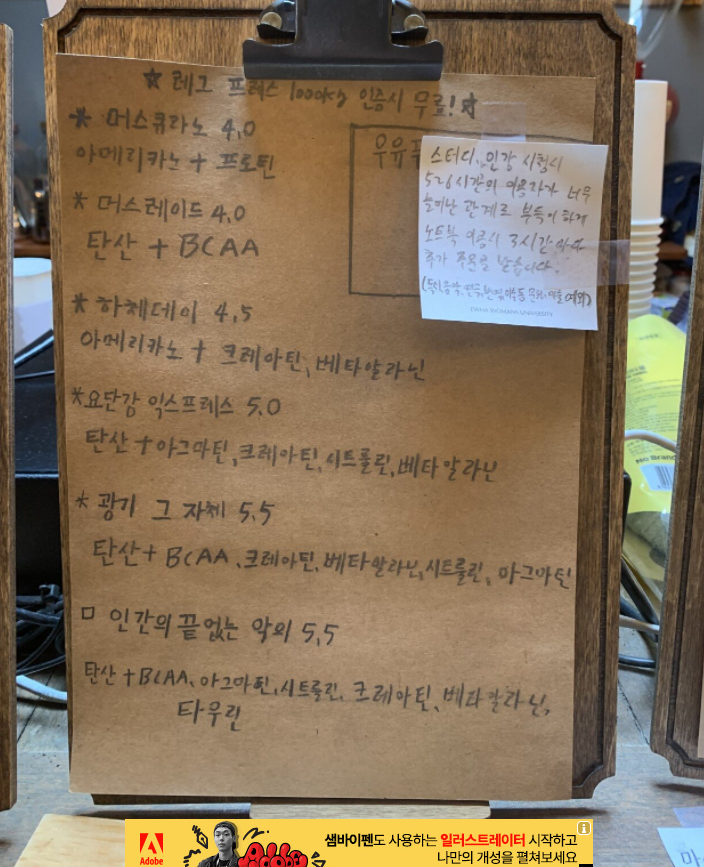 ☆ 레그 프레스 1000kg 인증시 무료! ☆
* 머스큐라노 4.0
아메리카노 + 프로틴
* 머스레이드 4.0
탄산 + BCAA
* 하체데이 4.5
아메리카노 + 크레아틴, 베타알라닌
* 요단강 익스프레스 5.0
탄산 + 아그마틴, 크레아틴, 시트룰린, 베타알라닌
* 광기 그 자체 5.5
탄산 + BCAA, 크레아틴, 베타알라닌, 시트룰린, 아그마틴
□ 인간의 끝없는 악의 5.5
탄산 + BCAA, 아그마틴, 시트룰린, 크레아틴, 베타알라닌,
타우린
우유
스터디, 인강 시청시
5~6시간의 이용자가 너무
늘어난 관계로 부득이하게
노트북 이용시 3시간마다
추가 주문을 받습니다.
예외)
UNIVERSITY
Adobe
샘바이펜도 사용하는 일러스트레이터 시작하고
나만의 개성을 펼쳐보세요